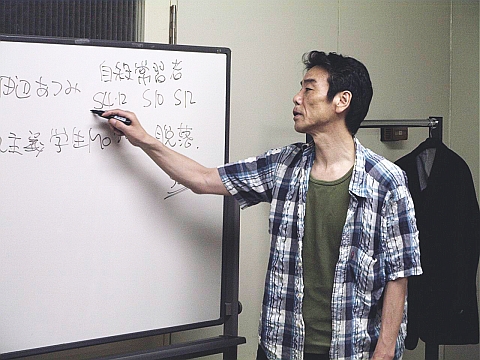 自殺常習者
田辺あつみ
S4.12 S10 S12
主義学生 脱落.